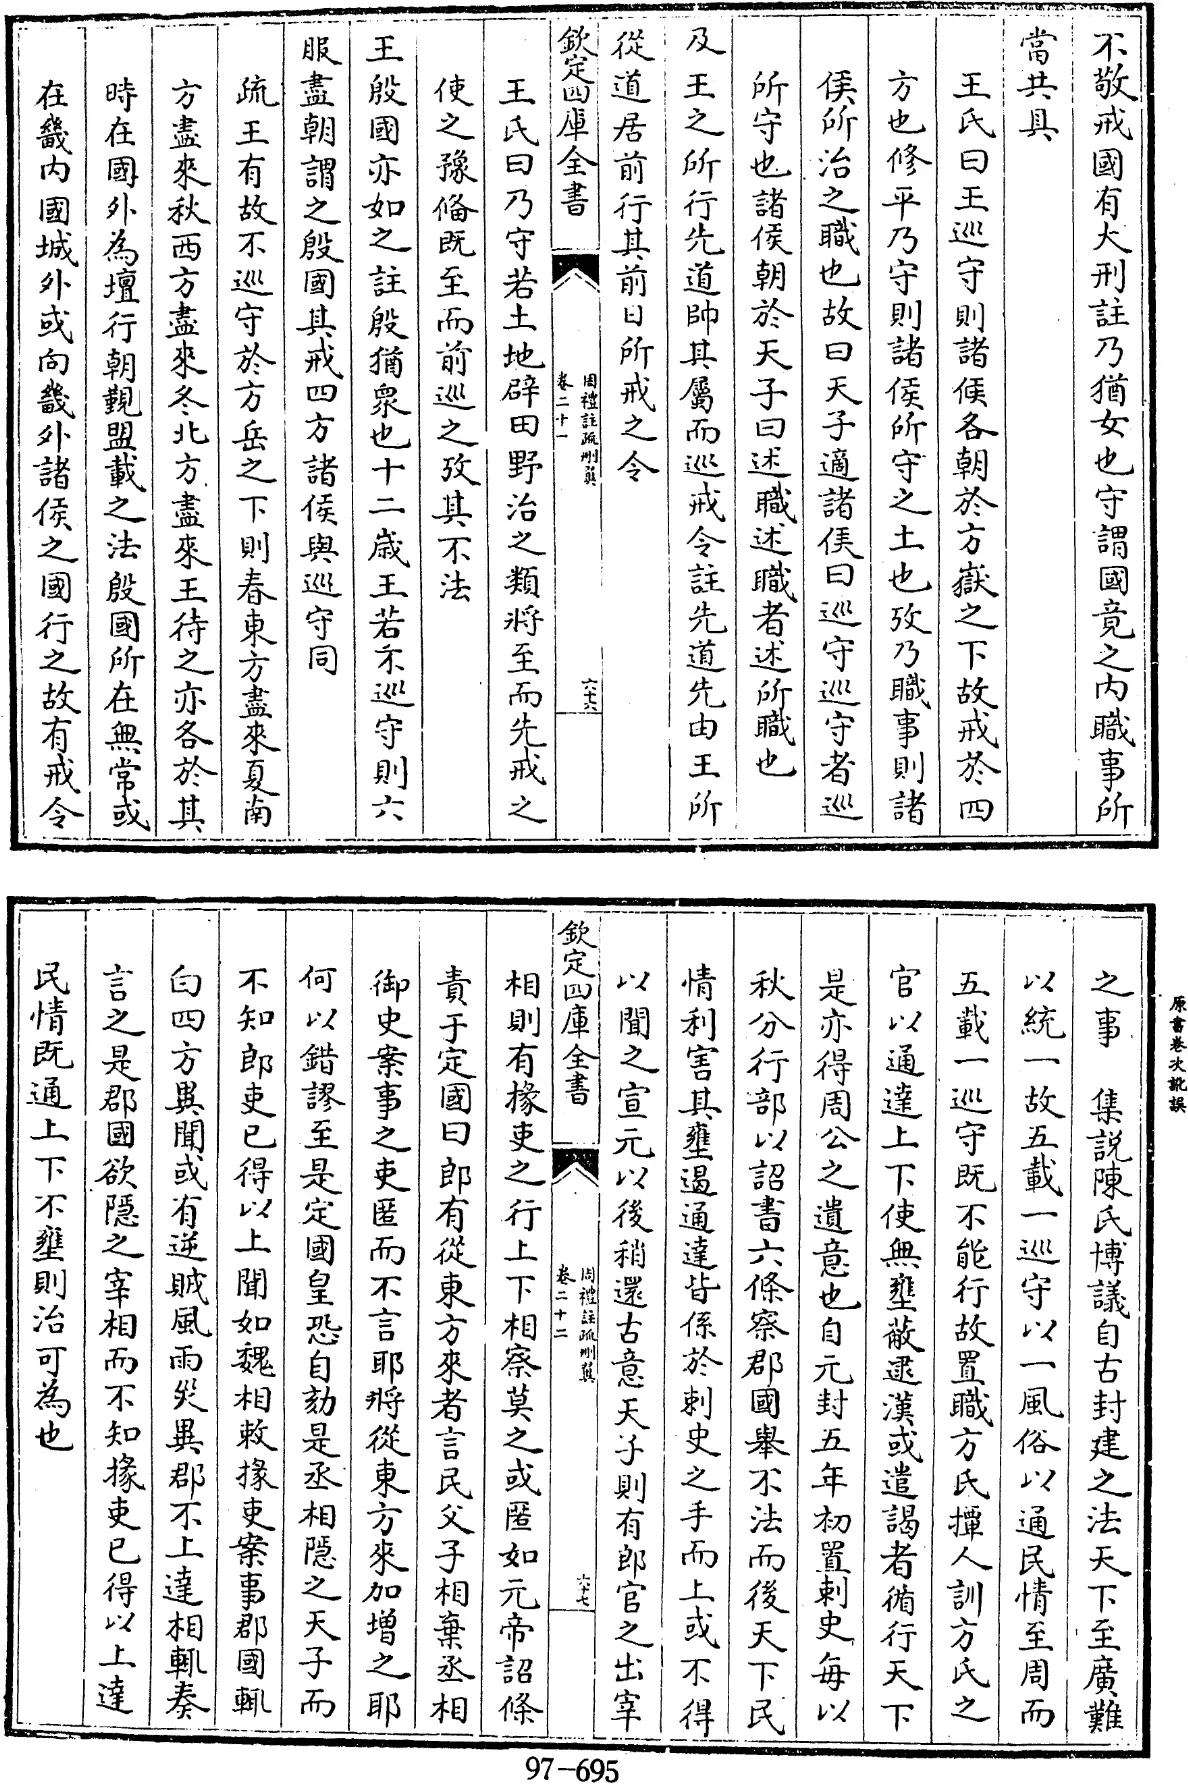 不敬戒國有大刑註乃猶女也守謂國竟之内職事所
當共具
王氏曰王巡守則諸侯各朝於方嶽之下故戒於四
方也修平乃守則諸侯所守之土也攷乃職事則諸
侯所治之職也故曰天子適諸侯曰巡守巡守者巡
所守也諸侯朝於天子曰述職述職者述所職也
及王之所行先道帥其屬而巡戒令註先道先由王所
從道居前行其前日所戒之令
欽定四庫全書
周禮註疏刪翼
卷二十一
六十六
王氏曰乃守若土地辟田野治之類將至而先戒之
使之豫俻既至而前巡之攷其不法
王殷國亦如之註殷猶衆也十二歲王若不巡守則六
服盡朝謂之殷國其戒四方諸侯與巡守同
疏王有故不巡守於方岳之下則春東方盡來夏南
方盡來秋西方盡來冬北方盡來王待之亦各於其
時在國外為壇行朝覲盟載之法殷國所在無常或
在畿内國城外或向畿外諸侯之國行之故有戒令
原書卷次訛誤
之事 集説陳氏博議自古封建之法天下至廣難
以統一故五載一巡守以一風俗以通民情至周而
五載一巡守既不能行故置職方氏撢人訓方氏之
官以通達上下使無壅蔽逮漢或遣謁者循行天下
是亦得周公之遺意也自元封五年初置刺史每以
秋分行部以詔書六條察郡國舉不法而後天下民
情利害其壅遏通達皆係於刺史之手而上或不得
以聞之宣元以後稍還古意天子則有郎官之出宰
欽定四庫全書
周禮註疏刪翼
卷二十二
六十七
相則有掾吏之行上下相察莫之或匿如元帝詔條
責于定國曰郎有從東方來者言民父子相棄丞相
御史案事之吏匿而不言耶將從東方來加增之耶
何以錯謬至是定國皇恐自劾是丞相隱之天子而
不知郎吏已得以上聞如魏相敕掾吏案事郡國輒
白四方異聞或有逆賊風雨災異郡不上達相輒奏
言之是郡國欲隱之宰相而不知掾吏已得以上達
民情既通上下不壅則治可為也
97-695